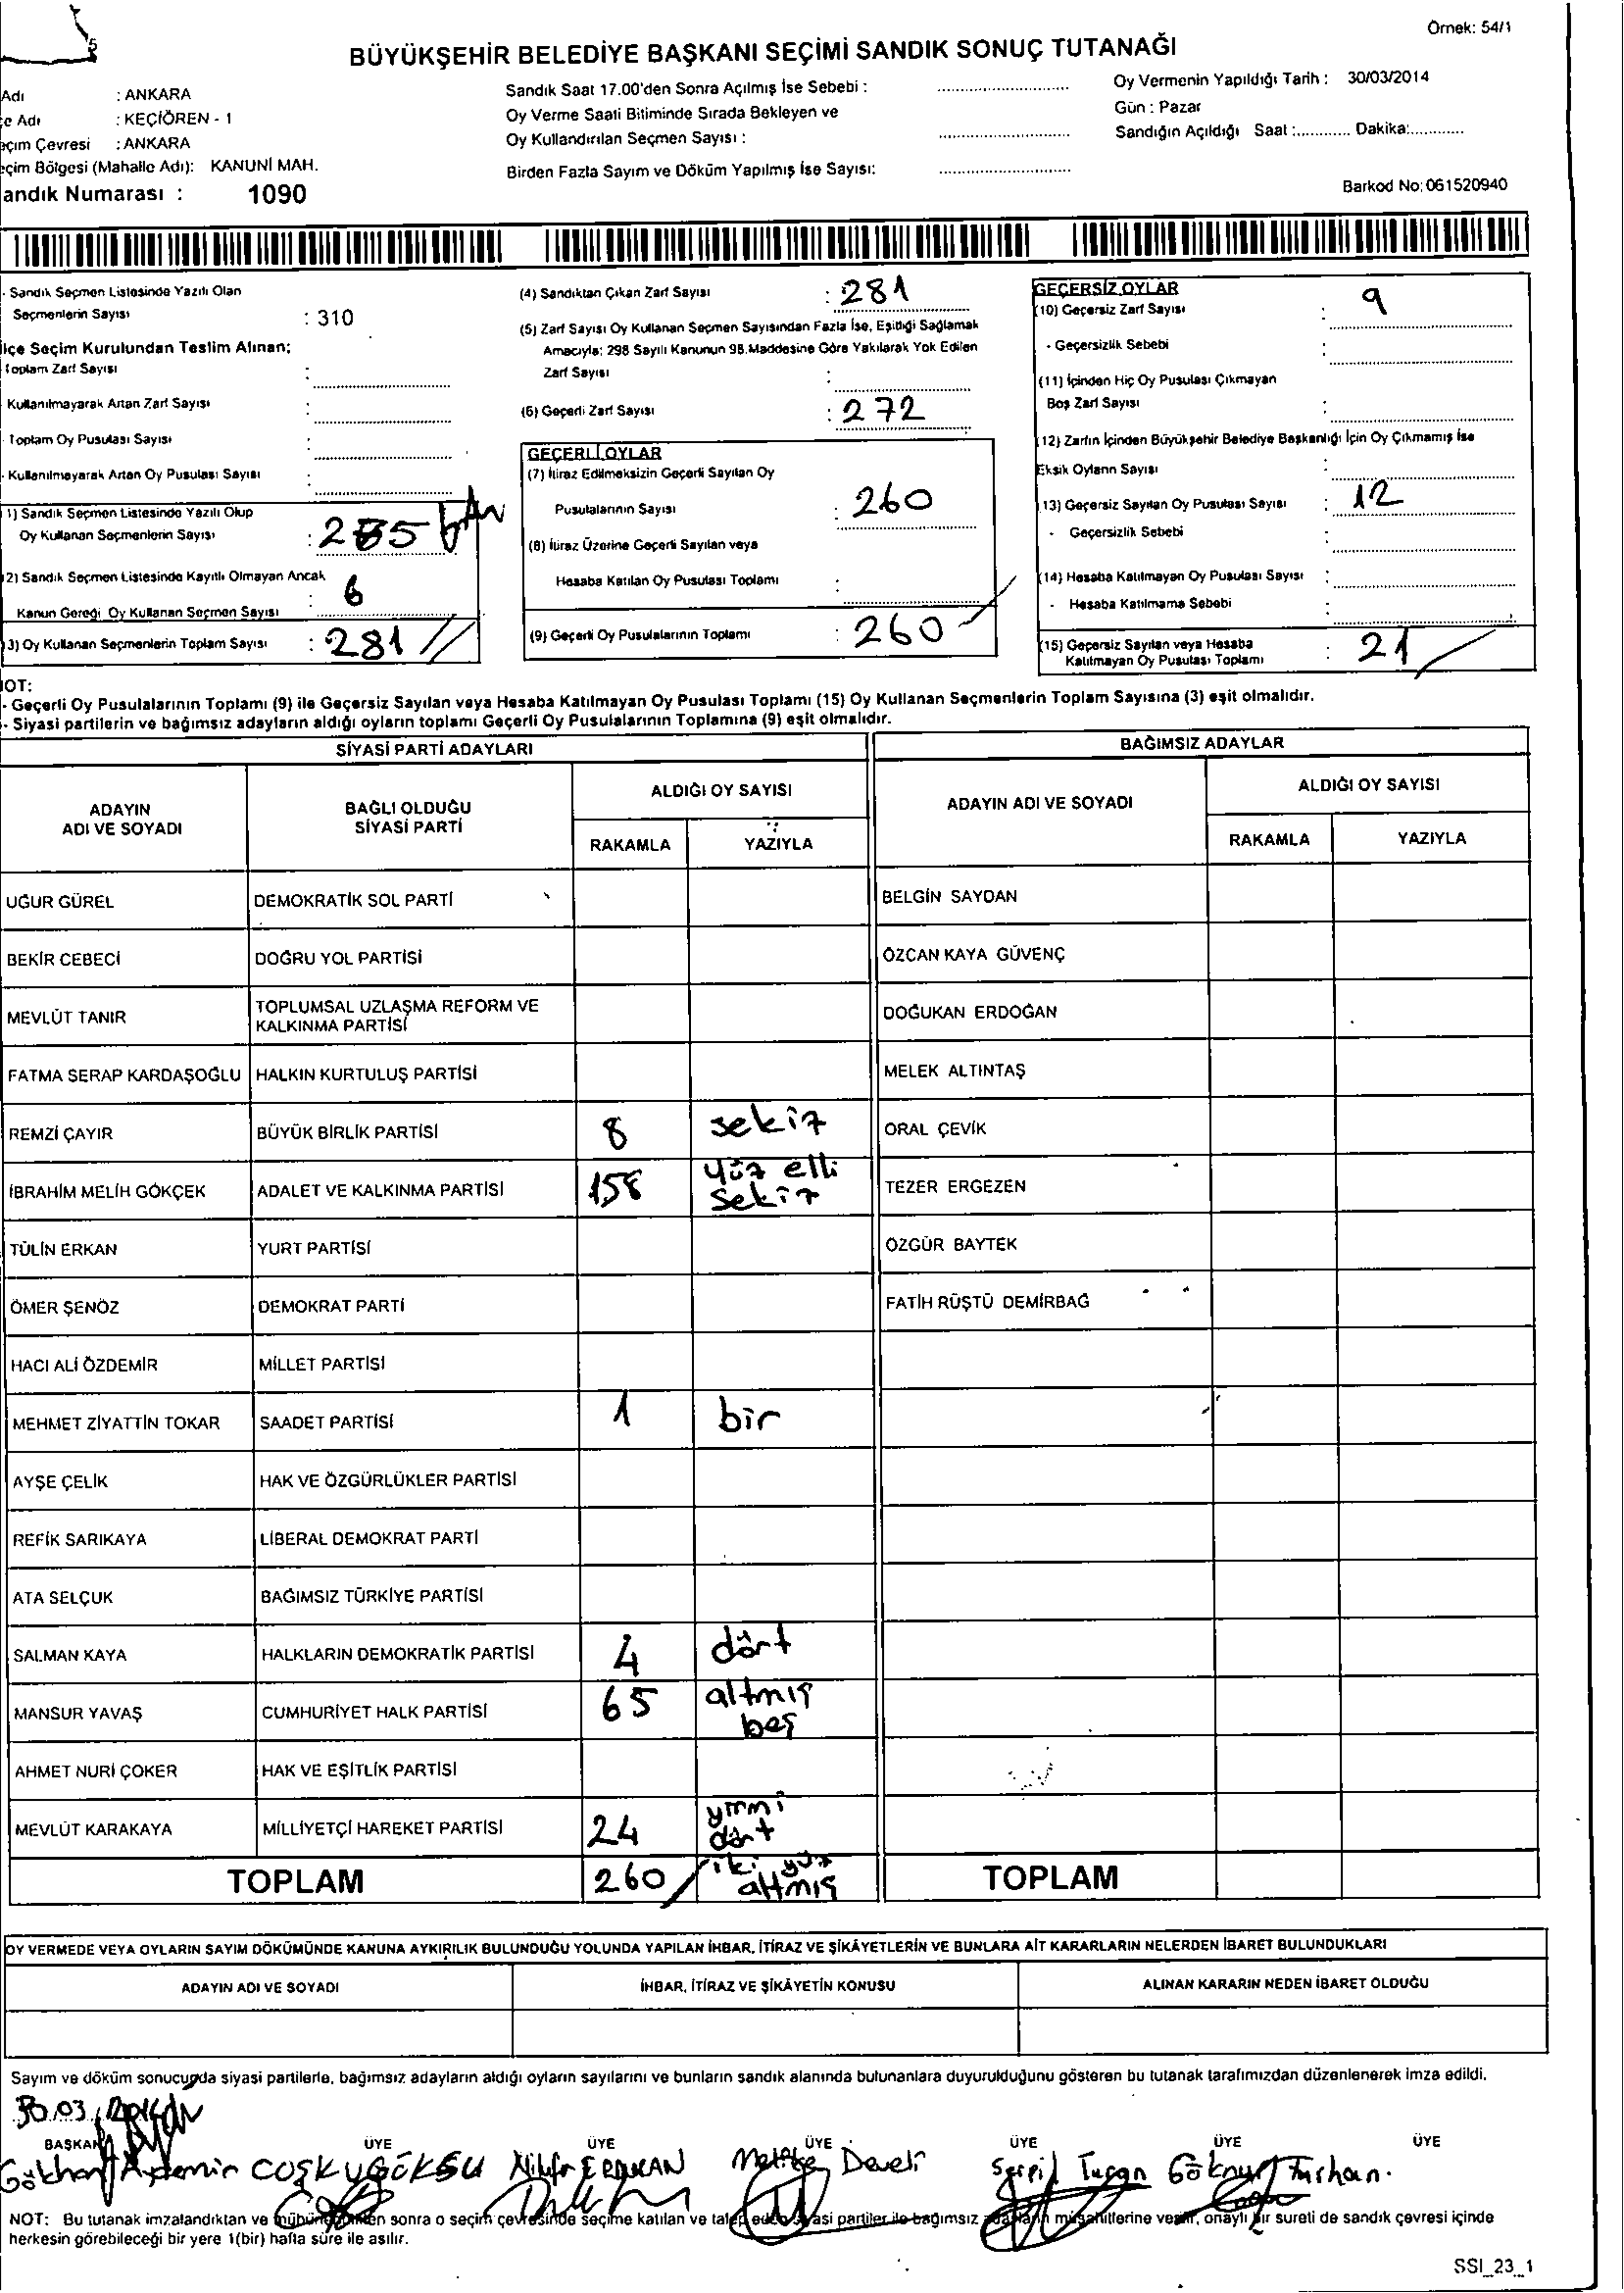 Örnek: 54/1
BÜYÜKŞEHİR BELEDİYE BAŞKANI SEÇİMİ SANDIK SONUÇ TUTANAĞI
Adı : ANKARA
çe Adı : KEÇİÖREN - 1
eçim Çevresi : ANKARA
eçim Bölgesi (Mahalle Adı): KANUNİ MAH.
andık Numarası : 1090
Sandık Saat 17.00'den Sonra Açılmış İse Sebebi :
Oy Verme Saati Bitiminde Sırada Bekleyen ve
Oy Kullandırılan Seçmen Sayısı :
Birden Fazla Sayım ve Döküm Yapılmış İse Sayısı:
Oy Vermenin Yapıldığı Tarih : 30/03/2014
Gün : Pazar
Sandığın Açıldığı Saat :............ Dakika:............
Barkod No: 061520940
- Sandık Seçmen Listesinde Yazılı Olan
Seçmenlerin Sayısı : 310
lçe Seçim Kurulundan Teslim Alınan;
Toplam Zarf Sayısı :
Kullanılmayarak Artan Zarf Sayısı :
Toplam Oy Pusulası Sayısı :
- Kullanılmayarak Artan Oy Pusulası Sayısı :
1) Sandık Seçmen Listesinde Yazılı Olup
Oy Kullanan Seçmenlerin Sayısı : 275
2) Sandık Seçmen Listesinde Kayıtlı Olmayan Ancak
Kanun Gereği Oy Kullanan Seçmen Sayısı : 6
3) Oy Kullanan Seçmenlerin Toplam Sayısı : 281
(4) Sandıktan Çıkan Zarf Sayısı : 281
(5) Zarf Sayısı Oy Kullanan Seçmen Sayısından Fazla İse, Eşitliği Sağlamak
Amacıyla; 298 Sayılı Kanunun 98.Maddesine Göre Yakılarak Yok Edilen
Zarf Sayısı :
(6) Geçerli Zarf Sayısı : 272
GEÇERLİ OYLAR
(7) İtiraz Edilmeksizin Geçerli Sayılan Oy
Pusulalarının Sayısı : 260
(8) İtiraz Üzerine Geçerli Sayılan veya
Hesaba Katılan Oy Pusulası Toplamı :
(9) Geçerli Oy Pusulalarının Toplamı : 260
GEÇERSİZ OYLAR
(10) Geçersiz Zarf Sayısı : 9
- Geçersizlik Sebebi :
(11) İçinden Hiç Oy Pusulası Çıkmayan
Boş Zarf Sayısı :
(12) Zarfın İçinden Büyükşehir Belediye Başkanlığı İçin Oy Çıkmamış İse
Eksik Oyların Sayısı :
(13) Geçersiz Sayılan Oy Pusulası Sayısı : 12
- Geçersizlik Sebebi :
(14) Hesaba Katılmayan Oy Pusulası Sayısı :
- Hesaba Katılmama Sebebi :
(15) Geçersiz Sayılan veya Hesaba
Katılmayan Oy Pusulası Toplamı : 21
NOT:
- Geçerli Oy Pusulalarının Toplamı (9) ile Geçersiz Sayılan veya Hesaba Katılmayan Oy Pusulası Toplamı (15) Oy Kullanan Seçmenlerin Toplam Sayısına (3) eşit olmalıdır.
- Siyasi partilerin ve bağımsız adayların aldığı oyların toplamı Geçerli Oy Pusulalarının Toplamına (9) eşit olmalıdır.
SİYASİ PARTİ ADAYLARI BAĞIMSIZ ADAYLAR
ADAYIN ADI VE SOYADI BAĞLI OLDUĞU SİYASİ PARTİ ALDIĞI OY SAYISI ADAYIN ADI VE SOYADI ALDIĞI OY SAYISI
RAKAMLA YAZIYLA RAKAMLA YAZIYLA
UĞUR GÜREL DEMOKRATİK SOL PARTİ BELGİN SAYDAN
BEKİR CEBECİ DOĞRU YOL PARTİSİ ÖZCAN KAYA GÜVENÇ
MEVLÜT TANIR TOPLUMSAL UZLAŞMA REFORM VE KALKINMA PARTİSİ DOĞUKAN ERDOĞAN
FATMA SERAP KARDAŞOĞLU HALKIN KURTULUŞ PARTİSİ MELEK ALTINTAŞ
REMZİ ÇAYIR BÜYÜK BİRLİK PARTİSİ 8 sekiz ORAL ÇEVİK
İBRAHİM MELİH GÖKÇEK ADALET VE KALKINMA PARTİSİ 158 yüz elli sekiz TEZER ERGEZEN
TÜLİN ERKAN YURT PARTİSİ ÖZGÜR BAYTEK
ÖMER ŞENÖZ DEMOKRAT PARTİ FATİH RÜŞTÜ DEMİRBAĞ
HACI ALİ ÖZDEMİR MİLLET PARTİSİ
MEHMET ZİYATTİN TOKAR SAADET PARTİSİ 1 bir
AYŞE ÇELİK HAK VE ÖZGÜRLÜKLER PARTİSİ
REFİK SARIKAYA LİBERAL DEMOKRAT PARTİ
ATA SELÇUK BAĞIMSIZ TÜRKİYE PARTİSİ
SALMAN KAYA HALKLARIN DEMOKRATİK PARTİSİ 4 dört
MANSUR YAVAŞ CUMHURİYET HALK PARTİSİ 65 altmış beş
AHMET NURİ ÇOKER HAK VE EŞİTLİK PARTİSİ
MEVLÜT KARAKAYA MİLLİYETÇİ HAREKET PARTİSİ 24 yirmi dört
TOPLAM 260 iki yüz altmış TOPLAM
OY VERMEDE VEYA OYLARIN SAYIM DÖKÜMÜNDE KANUNA AYKIRILIK BULUNDUĞU YOLUNDA YAPILAN İHBAR, İTİRAZ VE ŞİKÂYETLERİN VE BUNLARA AİT KARARLARIN NELERDEN İBARET BULUNDUKLARI
ADAYIN ADI VE SOYADI İHBAR, İTİRAZ VE ŞİKÂYETİN KONUSU ALINAN KARARIN NEDEN İBARET OLDUĞU
Sayım ve döküm sonucunda siyasi partilerle, bağımsız adayların aldığı oyların sayılarını ve bunların sandık alanında bulunanlara duyurulduğunu gösteren bu tutanak tarafımızdan düzenlenerek imza edildi.
30.03.2014
BAŞKAN ÜYE ÜYE ÜYE ÜYE ÜYE ÜYE
Gökhan Aydemir COŞKU GÖKSU Nilüfer ERDUKAN Develi Serpil Turan Göknur Turhan.
NOT: Bu tutanak imzalandıktan ve mühürlendikten sonra o seçim çevresinde seçime katılan ve talep eden siyasi partiler ile bağımsız adayların müşahitlerine verilir, onaylı bir sureti de sandık çevresi içinde
herkesin görebileceği bir yere 1(bir) hafta süre ile asılır.
SSI_23_1